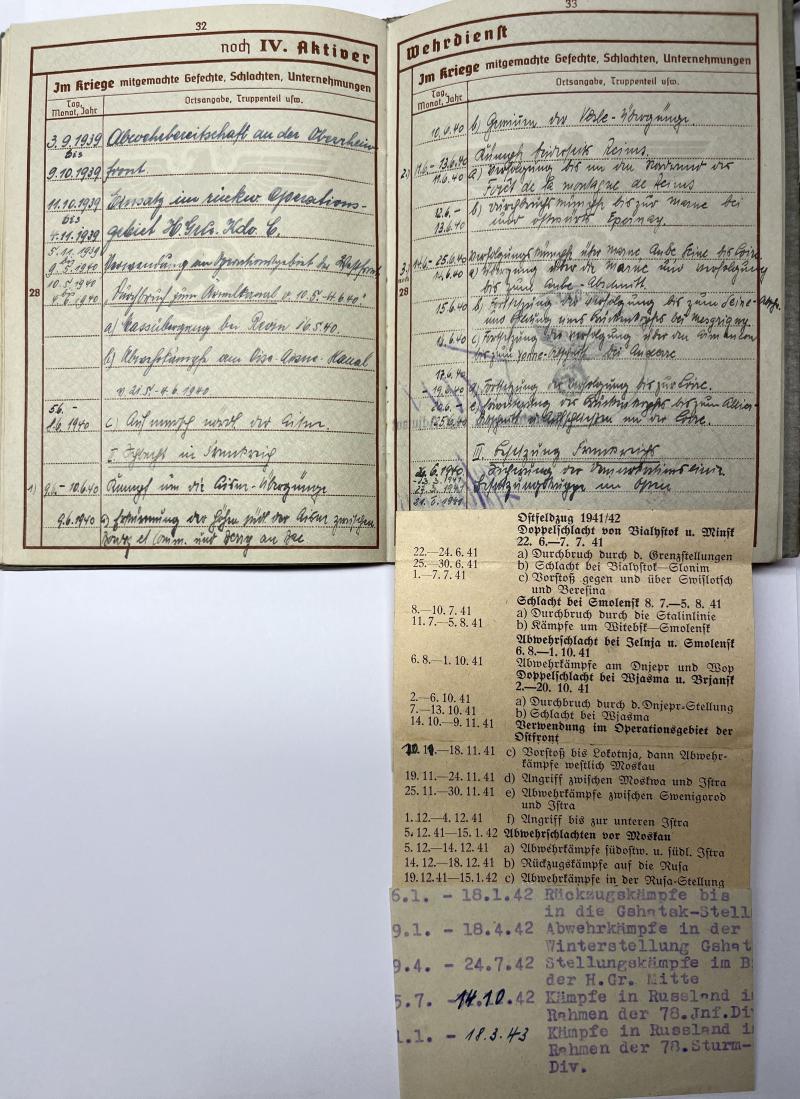 32
noch IV. Aktiver
Im Kriege mitgemachte Gefechte, Schlachten, Unternehmungen
Tag, Monat, Jahr
Ortsangabe, Truppenteil usw.
3.9.1939 Abwehrbereitschaft an der Oberrhein
bis
9.10.1939 front
11.10.1939 Einsatz im rückw Operations-
bis
4.11.1939 gebiet H. Grs. Kdo. C.
5.11.1939
9.5.1940 Verwendung am Operationsgebiet der Westfront
10.5.1940
28
4.6.1940 "Durchbruch zum Armelkanal v. 10.5.-4.6.40"
a) Maasübergang bei Revin 16.5.40.
b) Abwehrkämpfe am Oise-Aisne-Kanal
v. 21.5.-4.6.1940
5.6. -
8.6.1940 c) Aufmarsch nach der Aisne
I. Schlacht in Frankreich
1) 9.6.-10.6.40 Kampf um die Aisne-Übergänge
9.6.1940 a) Erstürmung der Höhen südl. der Aisne zwischen
33
Wehrdienst
Im Kriege mitgemachte Gefechte, Schlachten, Unternehmungen
Tag, Monat, Jahr
Ortsangabe, Truppenteil usw.
10.6.40 b) der Übergänge.
2.) 11.6.-13.6.40 Kämpfe beiderseits Reims.
11.6.40 a) Verfolgung bis an den Nordrand des
Forêt de la montagne de Reims
12.6.-
13.6.40 b) Durchbruchskämpfe bis zur Marne bei
und ostwärts Epernay.
3.) 14.6.-25.6.40 Verfolgungskämpfe über Marne Aube Seine bis Loire
14.6.40 a) Übergang über die Marne und Verfolgung
28
bis zum Aube-Abschnitt.
15.6.40 b) Fortsetzung der Verfolgung bis zum Seine-
und Bildung eines Brückenkopfes bei Mesgrigny.
16.6.40 c) Fortsetzung der Verfolgung über den
bis zum Yonne-Abschnitt bei Auxerre
17.6.40
-19.6.40 d) Fortsetzung der Verfolgung bis zur Loire.
20.6.- e) Erweiterung des Brückenkopfes bis zum Allier-
25.6.40 an der Loire.
II. Besetzung Frankreichs
26.6.1940 Sicherung der Demarkationslinie
Besatzungstruppe im Osten
Ostfeldzug 1941/42
Doppelschlacht von Bialystok u. Minsk
22. 6.—7. 7. 41
22.—24. 6. 41 a) Durchbruch durch d. Grenzstellungen
25.—30. 6. 41 b) Schlacht bei Bialystok—Slonim
1.—7. 7. 41 c) Vorstoß gegen und über Swislotsch
und Beresina
Schlacht bei Smolensk 8. 7.—5. 8. 41
8.—10. 7. 41 a) Durchbruch durch die Stalinlinie
11. 7.—5. 8. 41 b) Kämpfe um Witebsk—Smolensk
Abwehrschlacht bei Jelnja u. Smolensk
6. 8.—1. 10. 41
6. 8.—1. 10. 41 Abwehrkämpfe am Dnjepr und Wop
Doppelschlacht bei Wjasma u. Brjansk
2.—20. 10. 41
2.—6. 10. 41 a) Durchbruch durch d. Dnjepr-Stellung
7.—13. 10. 41 b) Schlacht bei Wjasma
14. 10.—9. 11. 41 Verwendung im Operationsgebiet der
Ostfront
—18. 11. 41 c) Vorstoß bis Lokotnja, dann Abwehr-
kämpfe westlich Moskau
19. 11.—24. 11. 41 d) Angriff zwischen Moskwa und Istra
25. 11.—30. 11. 41 e) Abwehrkämpfe zwischen Swenigorod
und Istra
1. 12.—4. 12. 41 f) Angriff bis zur unteren Istra
5. 12. 41—15. 1. 42 Abwehrschlachten vor Moskau
5. 12.—14. 12. 41 a) Abwehrkämpfe südostw. u. südl. Istra
14. 12.—18. 12. 41 b) Rückzugskämpfe auf die Rusa
19. 12. 41—15. 1. 42 c) Abwehrkämpfe in der Rusa-Stellung
6.1. - 18.1.42 Rückzugskämpfe bis
in die Gshatsk-Stell
9.1. - 18.4.42 Abwehrkämpfe in der
Winterstellung Gshat
9.4. - 24.7.42 Stellungskämpfe im B
der H.Gr. Mitte
5.7. - 14.10.42 Kämpfe in Russland i
Rahmen der 78.Jnf.Di
1.1. - 18.3.43 Kämpfe in Russland i
Rahmen der 78.Sturm-
Div.